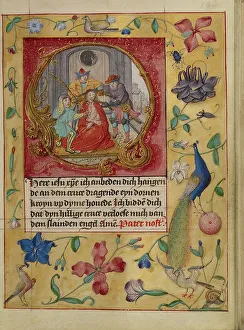 Here ihesu xpe ich anbeden dich hangen
de an dem cruce dragende eyn dornen
kroyn up dyme houede. Ich bidde dich
dat dyn hillige cruce verloese mich van
dem slainden engel. Ame. Pater noster